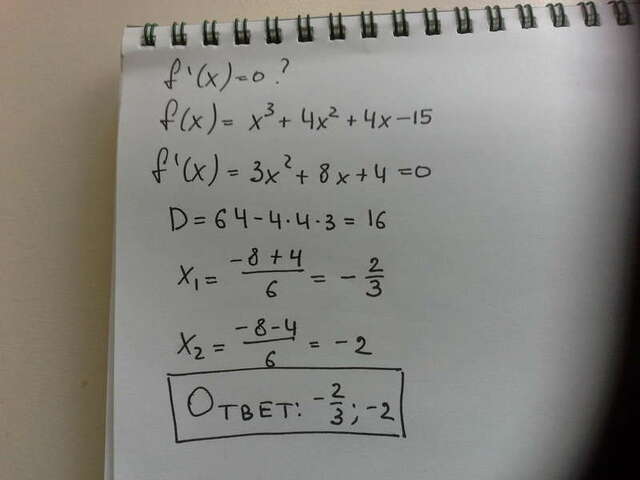 f'(x)=0?
f(x) = x³ + 4x² + 4x - 15
f'(x) = 3x² + 8x + 4 = 0
D = 64 - 4 · 4 · 3 = 16
x₁ = (-8 + 4)/6 = - 2/3
x₂ = (-8 - 4)/6 = - 2
Ответ: - 2/3 ; -2